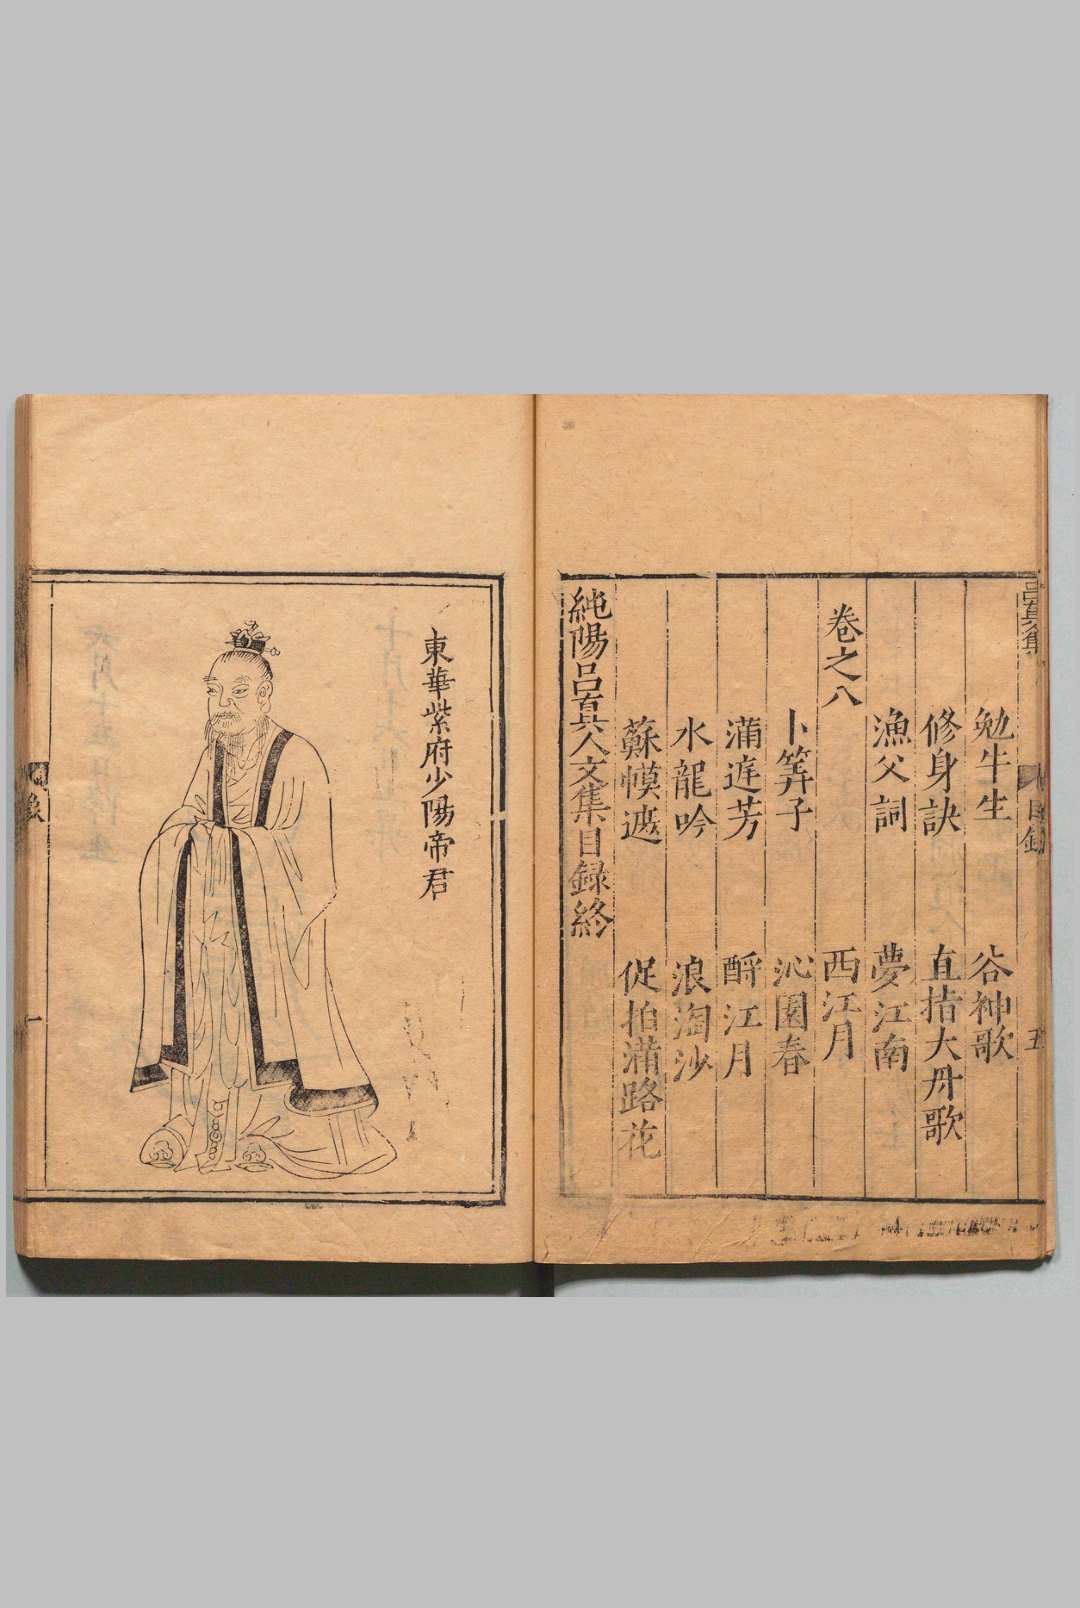 呂眞人集
目錄
五
勉牛生
谷神歌
修身訣
直指大丹歌
漁父詞
夢江南
卷之八
西江月
卜筭子
沁園春
滿庭芳
酹江月
水龍吟
浪淘沙
蘇幙遮
促拍滿路花
純陽呂眞人文集目録終
東華紫府少陽帝君
像
一